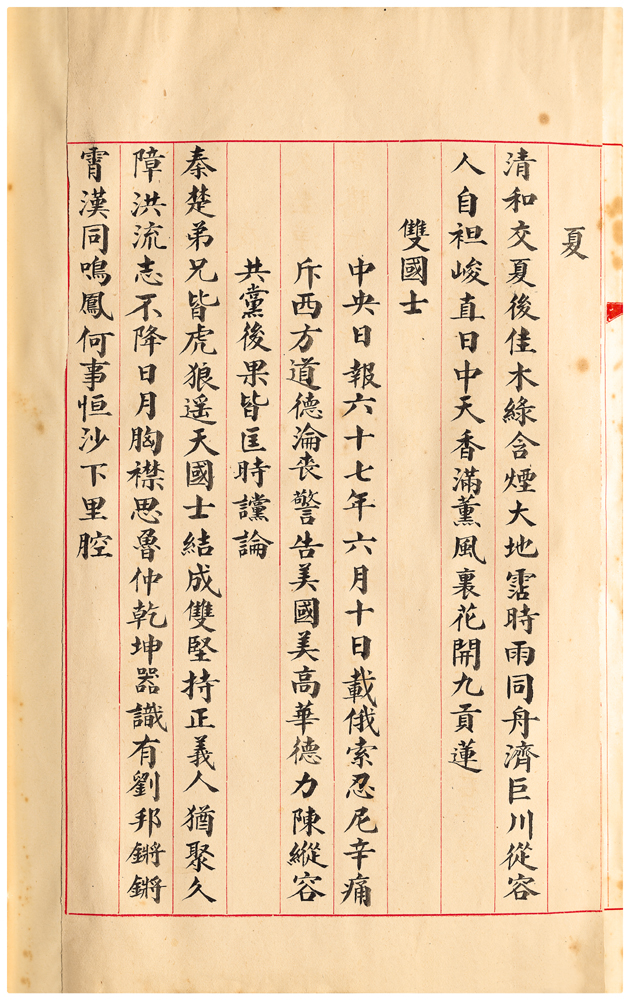 夏
清和交夏後佳木綠含煙大地霑時雨同舟濟巨川從容
人自袒峻直日中天香滿薰風裏花開九貢蓮
雙國士
中央日報六十七年六月十日載俄索忍尼辛痛
斥西方道德淪喪警告美國美高華德力陳縱容
共黨後果皆匡時讜論
秦楚弟兄皆虎狼遥天國士結成雙堅持正義人猶聚久
障洪流志不降日月胸襟思魯仲乾坤器識有劉邦鏘鏘
霄漢同鳴鳳何事恒沙下里腔